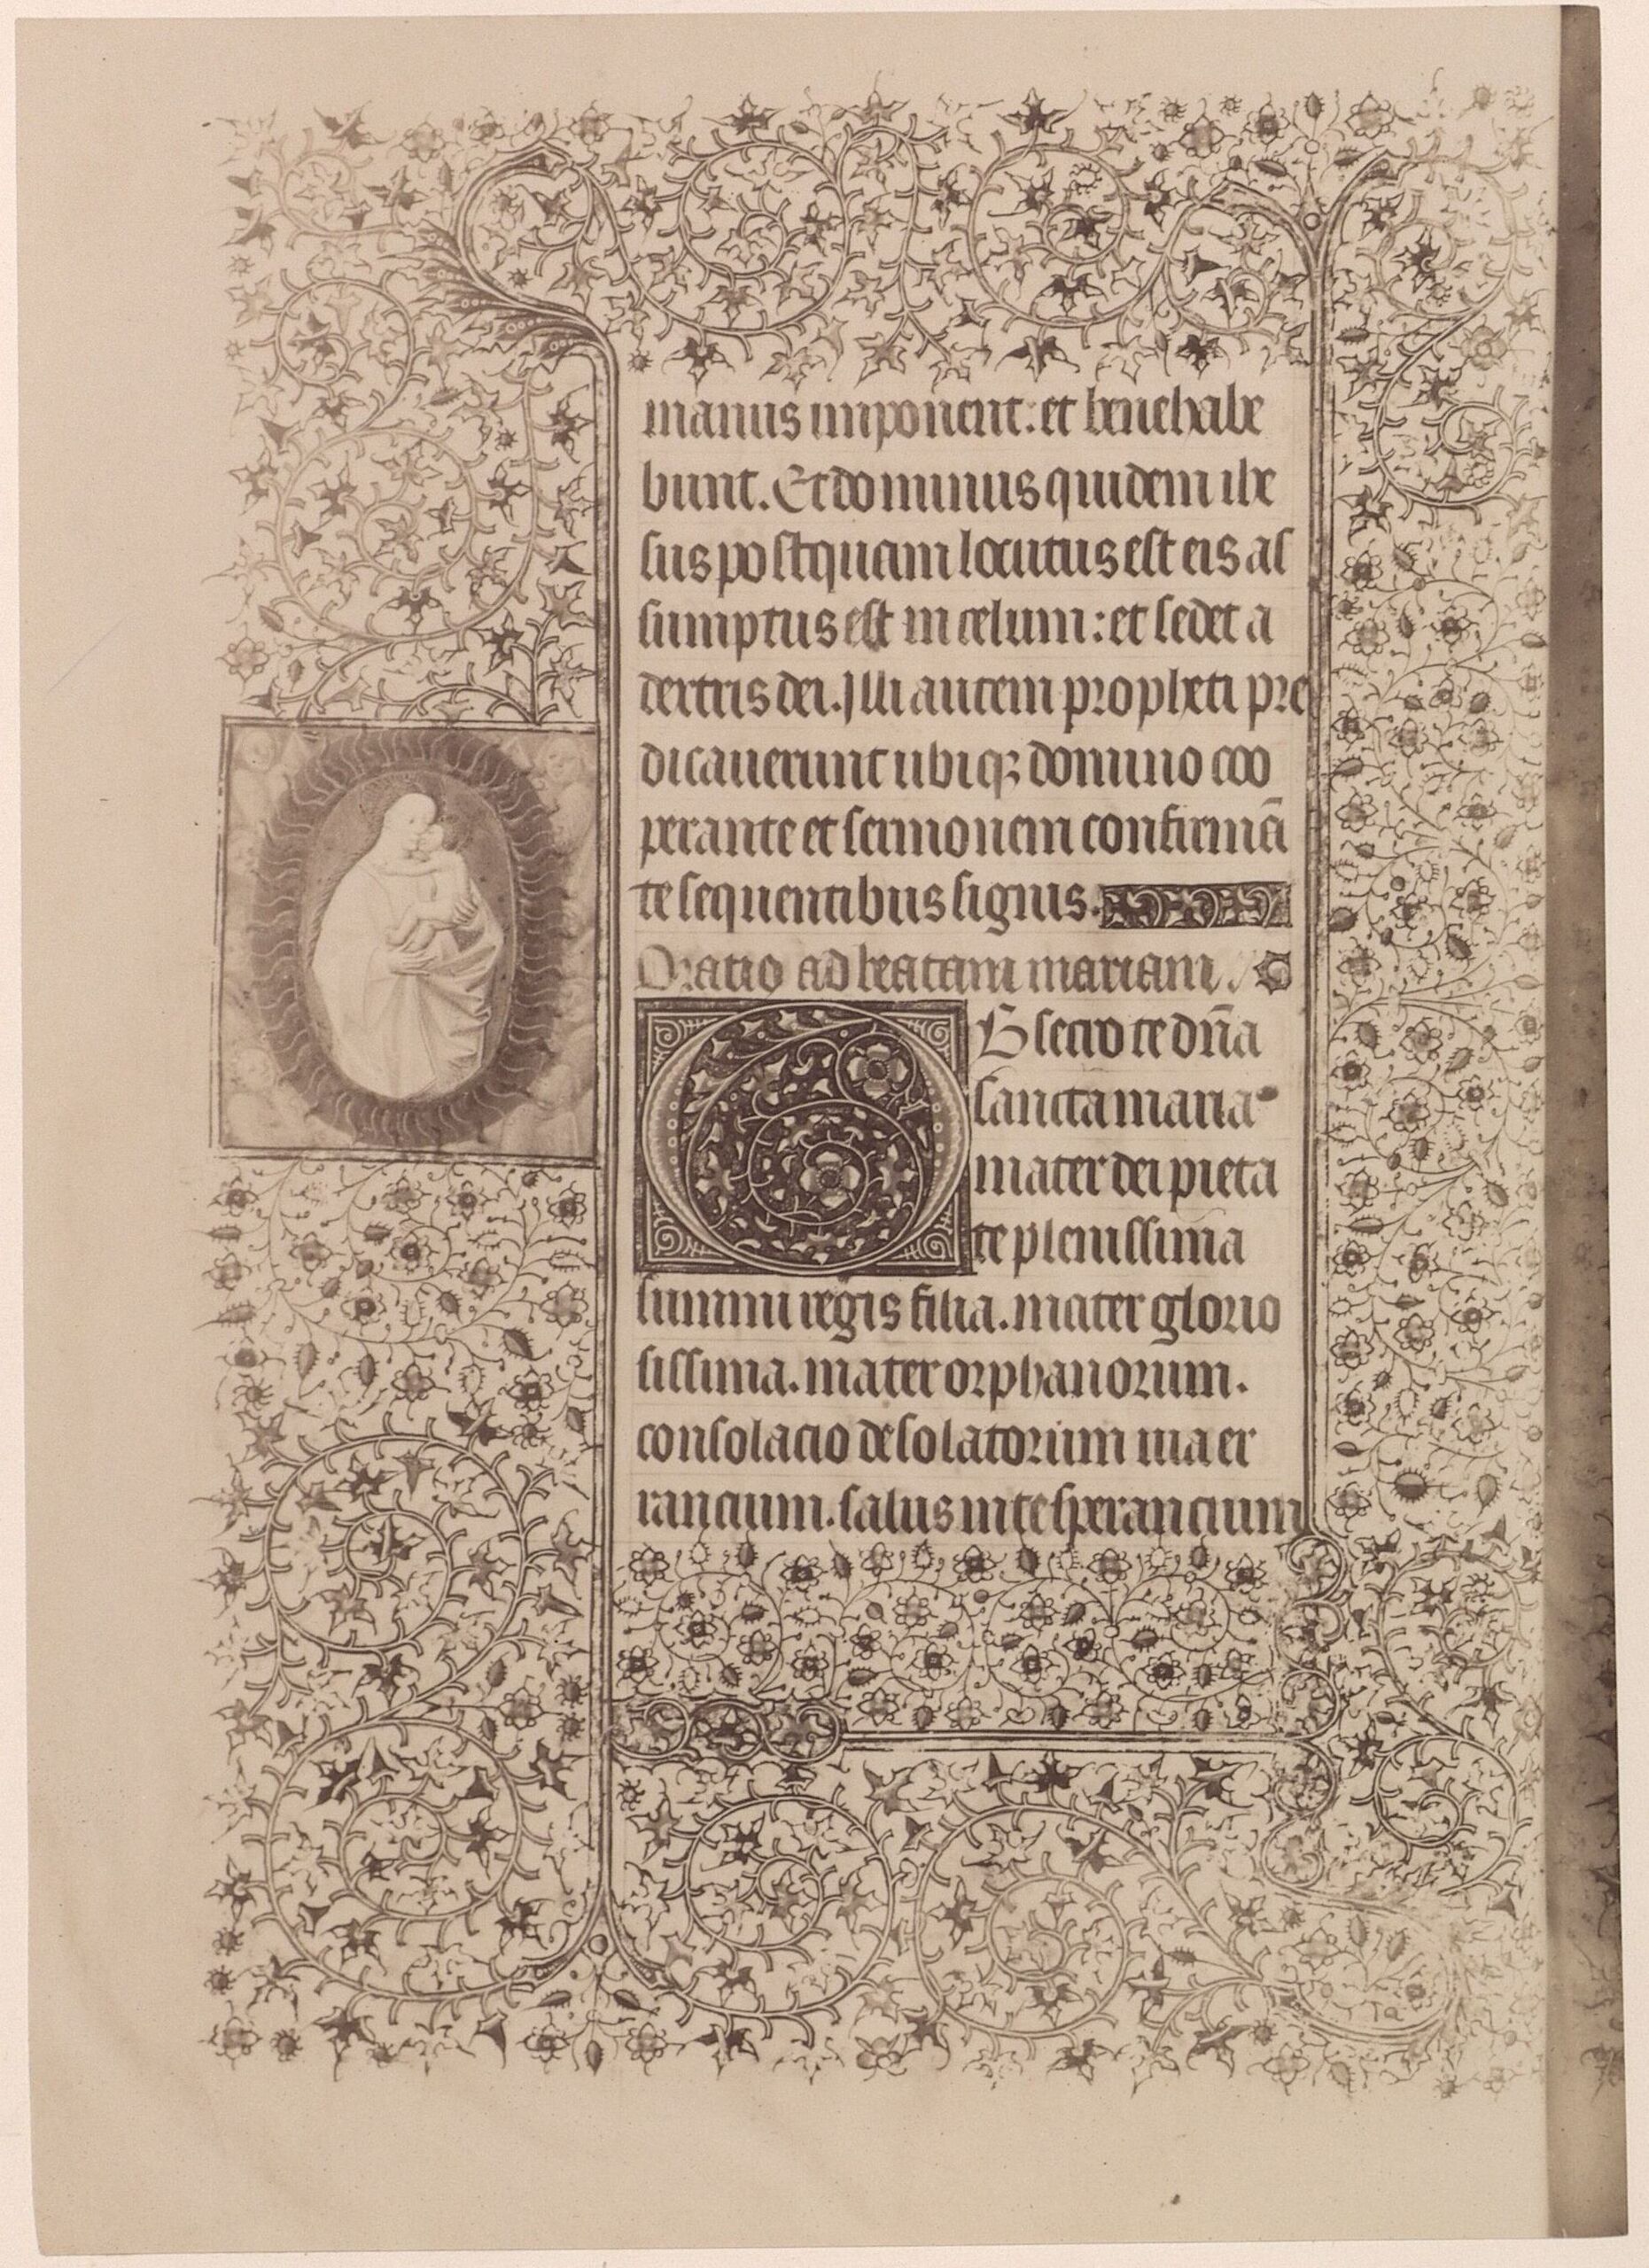 manus imponent: et benehabe
bunt. Et dominus quidem ihe
sus postquam locutus est eis as
sumptus est in celum: et sedet a
dextris dei. Illi autem propheti pre
dicauerunt ubiqꝫ domino coo
perante et sermonem confirmā
te sequentibus signis.
Oratio ad beatam mariam.
Obsecro te dn̄a
sancta maria
mater dei pieta
te plenissima
summi regis filia. mater glorio
sissima. mater orphanorum.
consolacio desolatorium uia er
rancium. salus in te sperancium